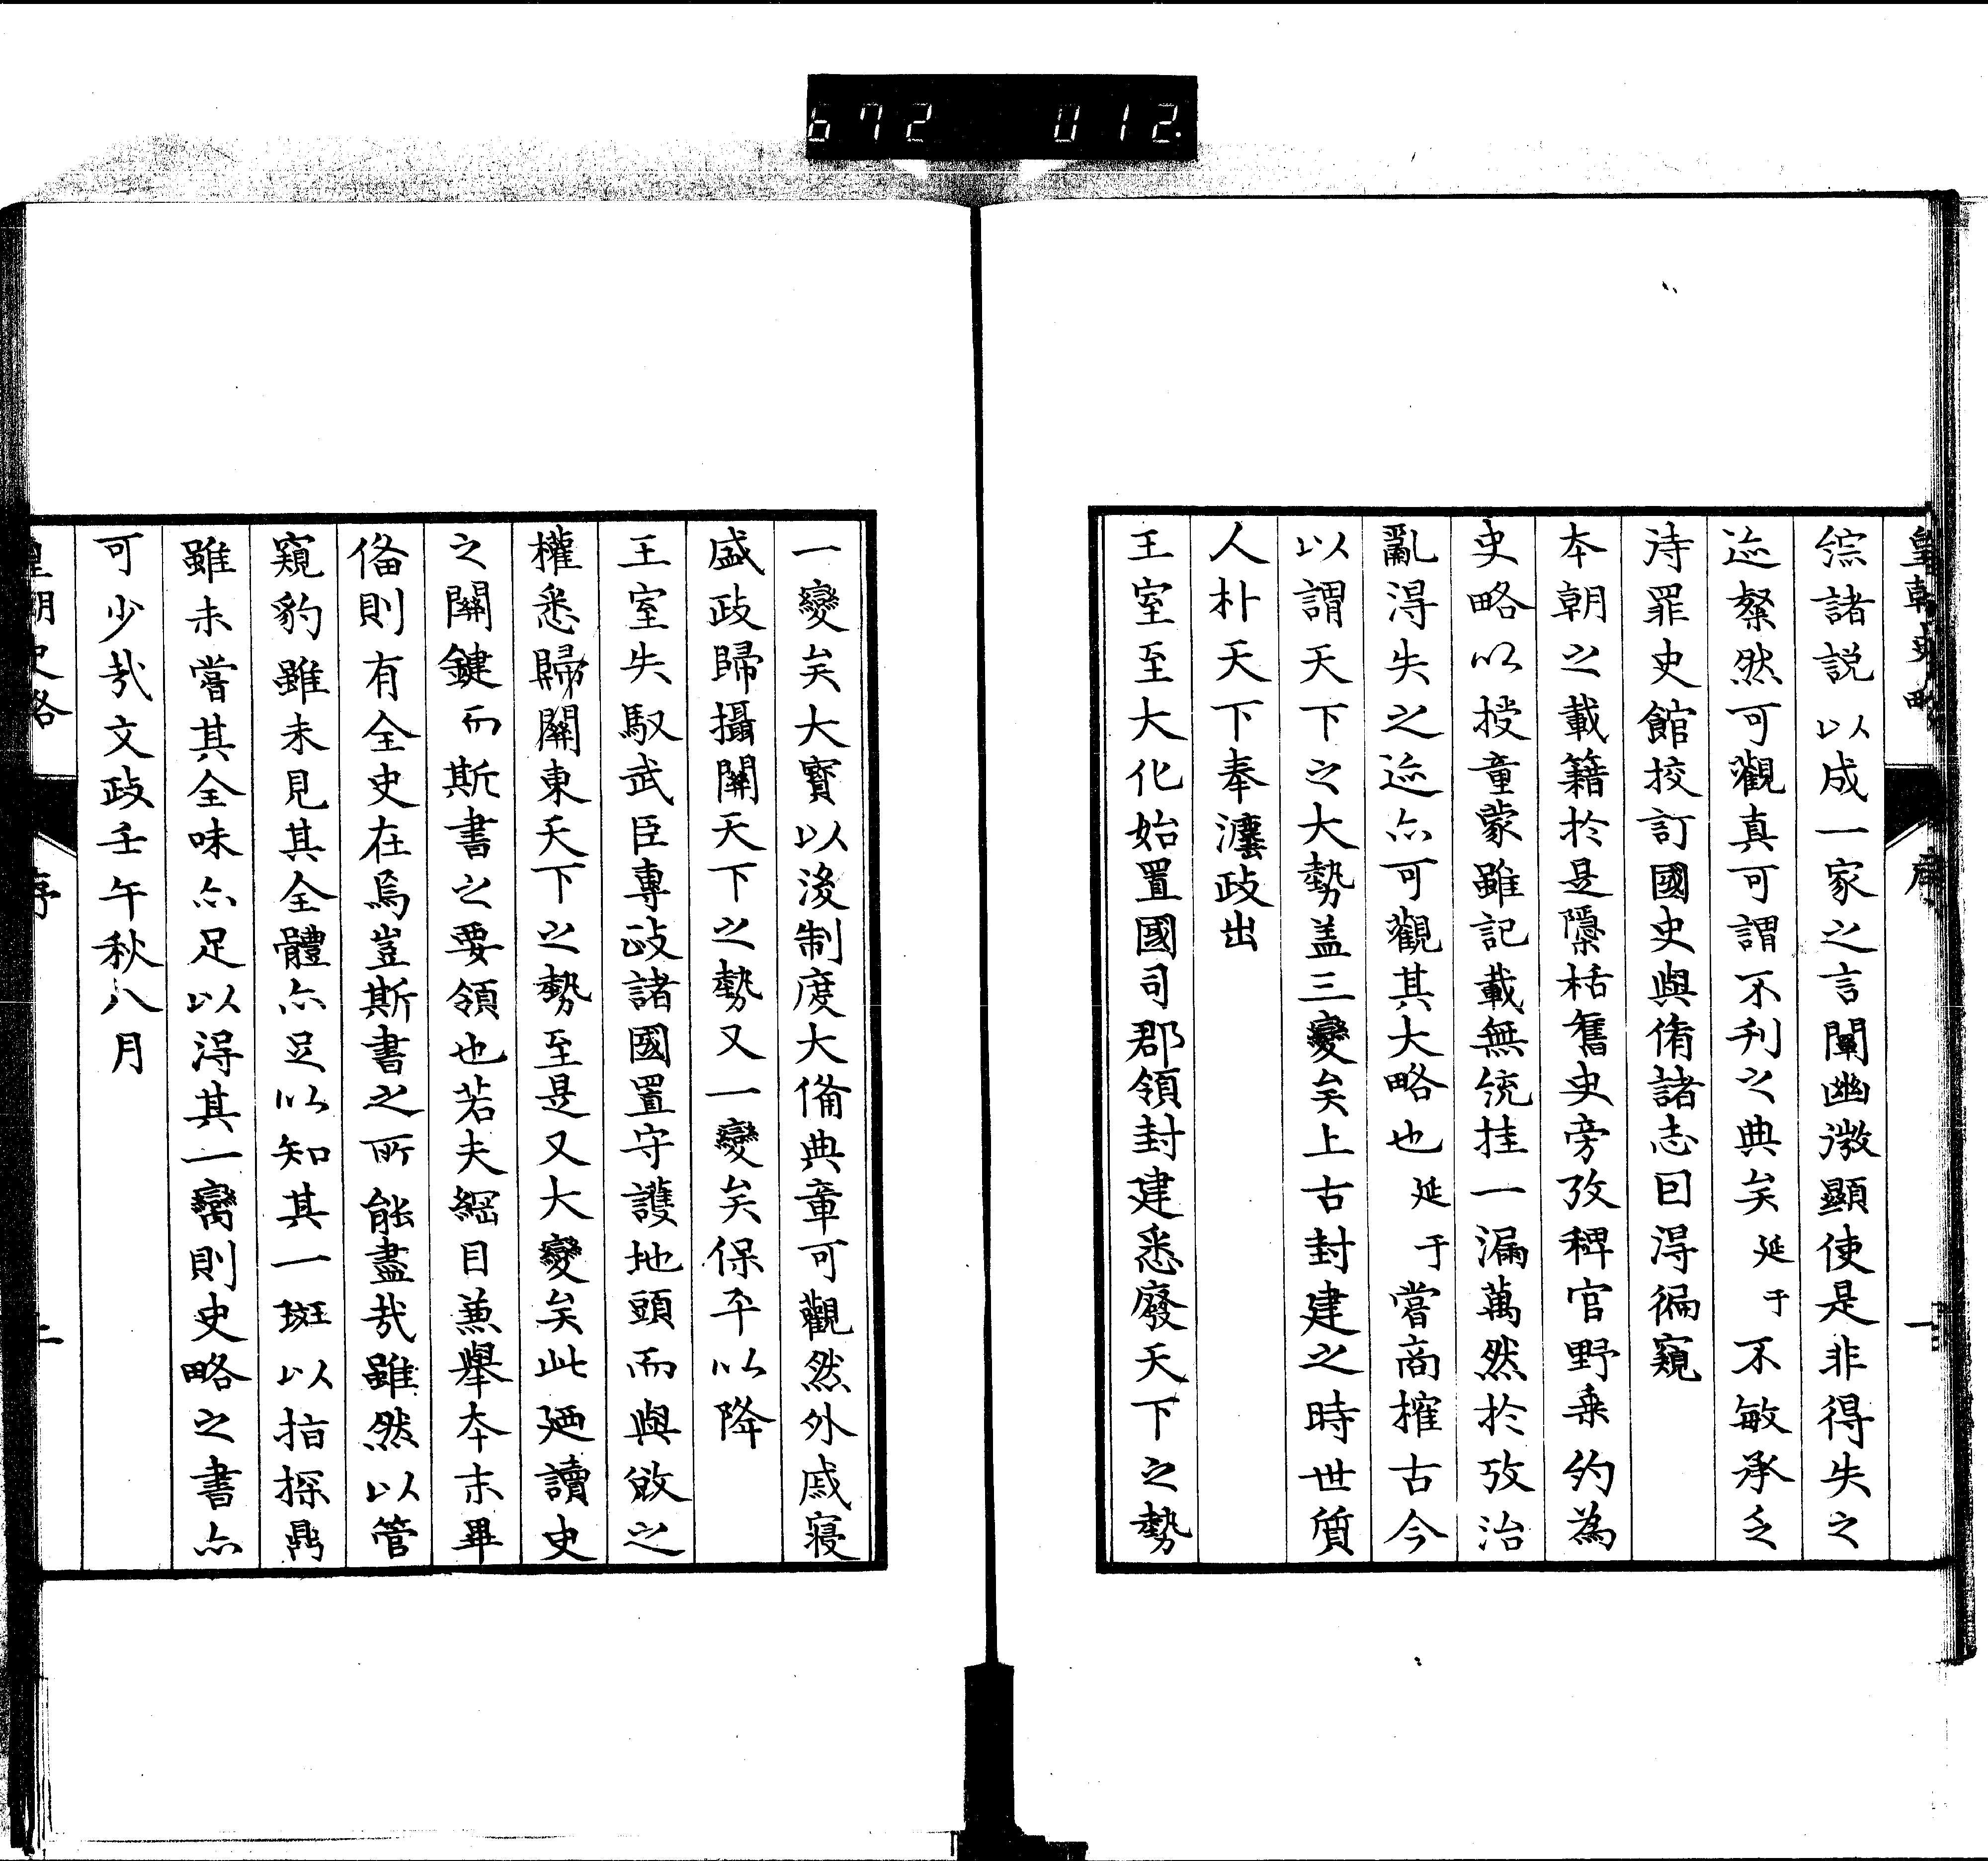 672 012.
皇朝史略 序
綜諸説以成一家之言闡幽微顯使是非得失之
迹粲然可觀真可謂不刋之典矣延于不敏承乏
待罪史館挍訂國史與脩諸志因得徧窺
本朝之載籍於是隱栝舊史旁攷稗官野乗約為
史略以授童蒙雖記載無統挂一漏萬然於攷治
亂得失之迹亦可觀其大略也延于嘗商搉古今
以謂天下之大勢盖三變矣上古封建之時世質
人朴天下奉灋政出
王室至大化始置國司郡領封建悉廢天下之勢
一變矣大寳以後制度大備典章可觀然外戚寝
盛政歸攝關天下之勢又一變矣保平以降
王室失馭武臣專政諸國置守護地頭而與奪之
權悉歸關東天下之勢至是又大變矣此廼讀史
之關鍵而斯書之要領也若夫綱目兼舉本末畢
備則有全史在焉豈斯書之所能盡哉雖然以管
窺豹雖未見其全體亦足以知其一斑以指探鼎
雖未嘗其全味亦足以得其一臠則史略之書亦
可少哉文政壬午秋八月
皇朝史略 序 二